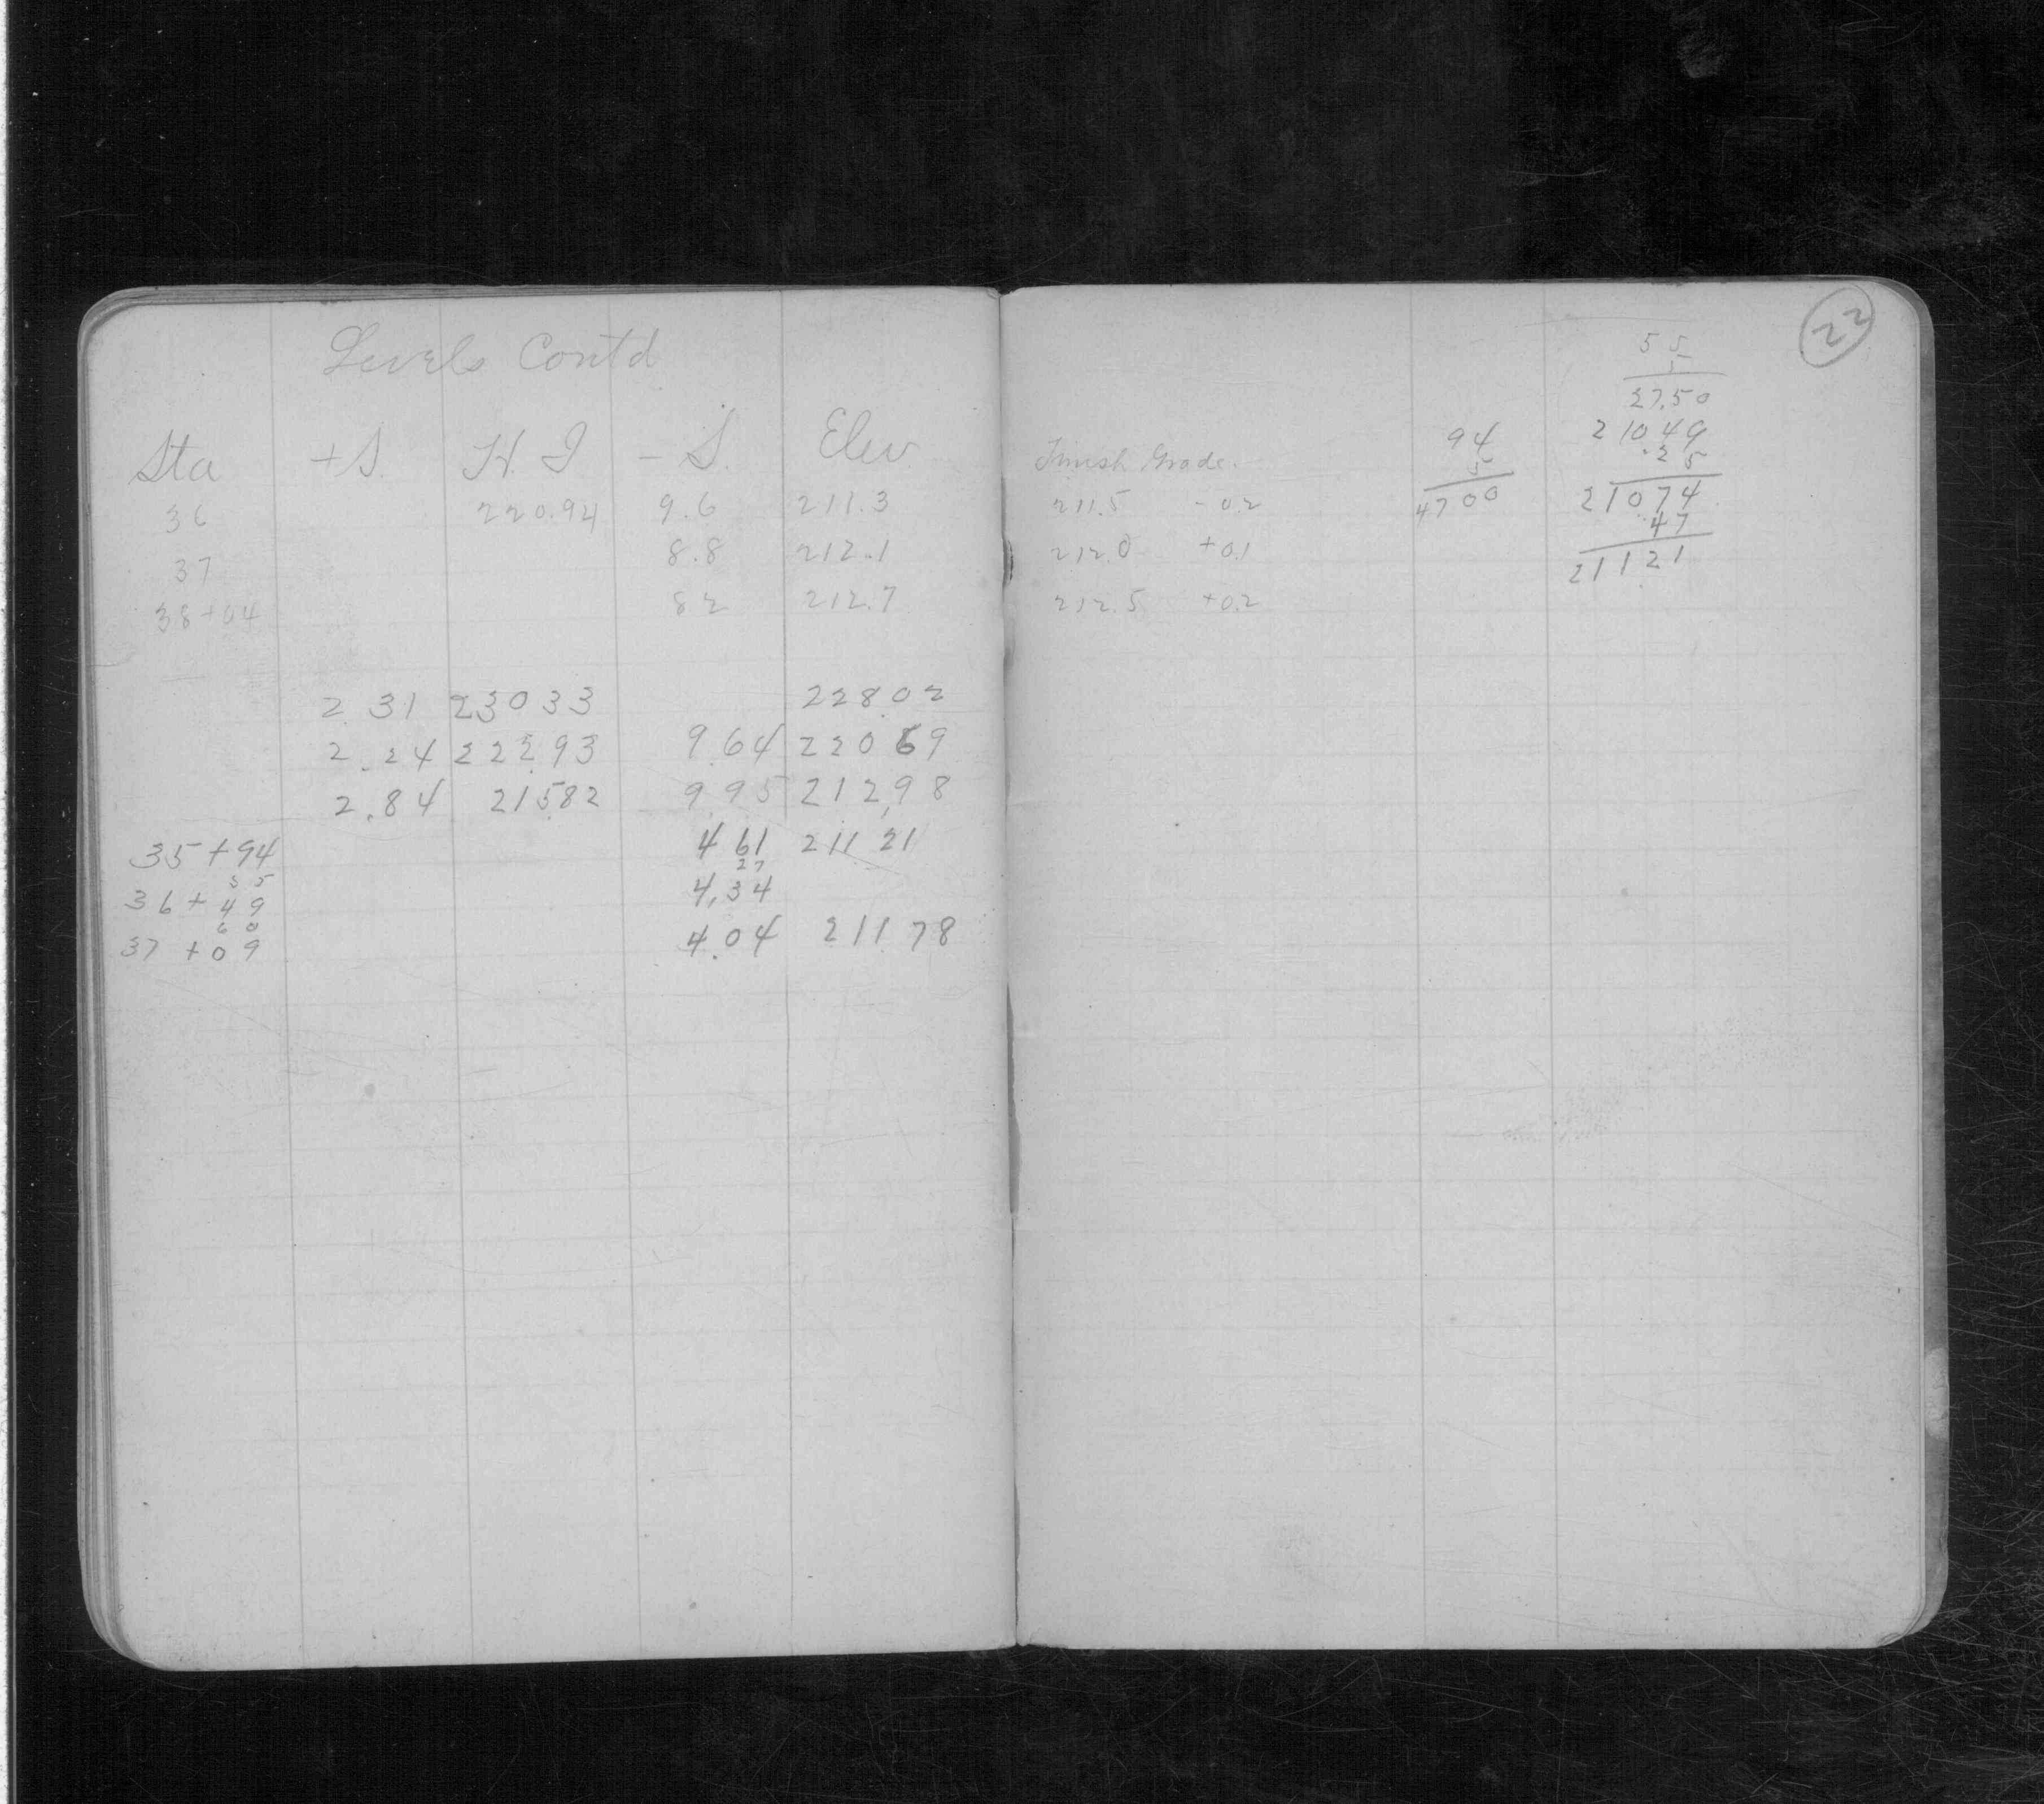 Levels Contd
Sta +S. H.I -S. Elev
36 220.94 9.6 211.3
37 8.8 212.1
38+04 82 212.7
2 31 23033 228.02
2.24 222.93 9.64 220 69
2.84 215.82 9.95 212.98
35+94 4 61 211 21
55 27
36+49 4.34
60
37+09 4.04 211.78
22
55
5
27.50
94 21049
5 .25
4700 21074
.47
21121
Finish Grade.
211.5 -0.2
212.0 +0.1
212.5 +0.2